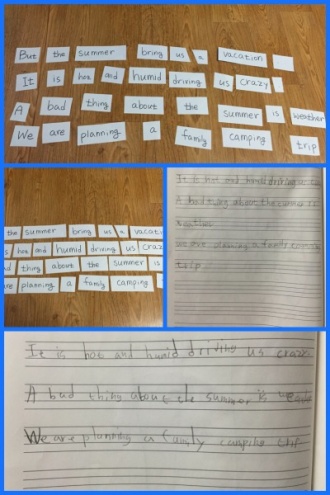 But the summer bring us a vacation
It is hot and humid driving us crazy
A bad thing about the summer is weather
We are planning a family camping trip
the summer bring us a vacati
is hot and humid driving us craz
d thing about the summer is
re planning a family camping
It is hot and humid driving us
A bad thing about the summer is
we are planning a family
trip
It is hot and humid driving us crazy
A bad thing about the summer is
We are planning a family camping trip